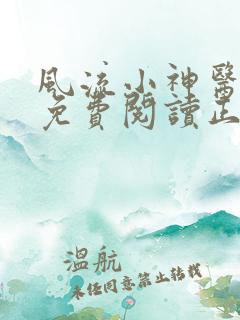 風流小神醫
免費閱讀正
溫航
未经同意禁止转载